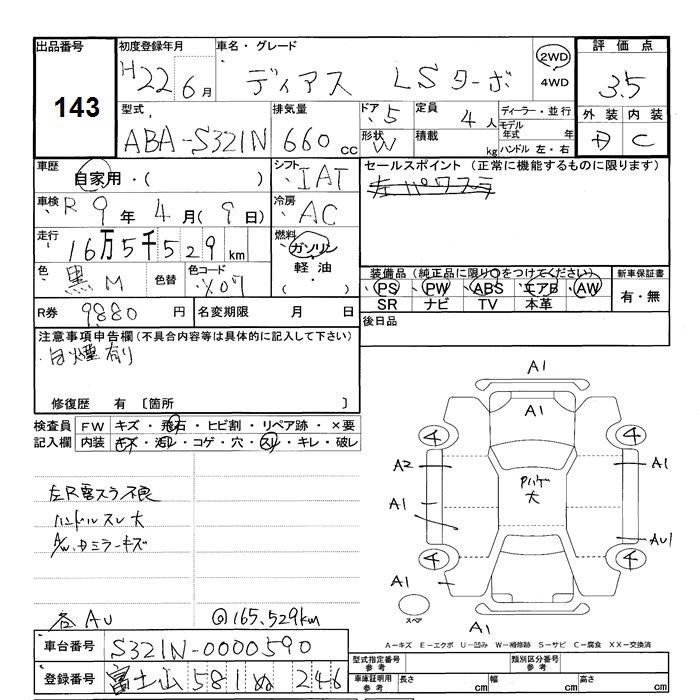 出品番号 143
初度登録年月 H22 6月
車名・グレード ディアス LSターボ 2WD 4WD
評価点 3.5
外装 D 内装 C
型式 ABA-S321N
排気量 660 cc
ドア 5
形状 W
定員 4人
積載 kg
ディーラー・並行
モデル年式 年
ハンドル 左・右
車歴 自家用・( )
シフト IAT
セールスポイント(正常に機能するものに限ります)
左パワスラ
車検 R 9年 4月(9日)
冷房 AC
走行 16万5千529km
燃料 ガソリン 軽油・
色 黒M 色替 色コード X07
装備品(純正品に限り○をつけてください)
PS・PW・ABS・エアB・AW
SR ナビ TV 本革
新車保証書 有・無
R券 9880円
名変期限 月 日
後日品
注意事項申告欄(不具合内容等は具体的に記入して下さい)
白煙有り
修復歴 有 〔箇所 〕
検査員記入欄
FW キズ・飛石・ヒビ割・リペア跡・×要
内装 キズ・汚レ・コゲ・穴・スレ・キレ・破レ
左R電スラ不良
ハンドルスレ大
A/W.Dミラーキズ
各AU
@165,529km
A1
A1
4 4
A2 A1
Pハゲ大
A1
AU1
4 4
A1
スペア
A1
A-キズ E-エクボ U-凹み W-補修跡 S-サビ C-腐食 XX-交換済
車台番号 S321N-0000590
登録番号 富士山 581 ぬ 246
型式指定番号参考
類別区分番号参考
車庫証明用参考 長さ cm 幅 cm 高さ cm